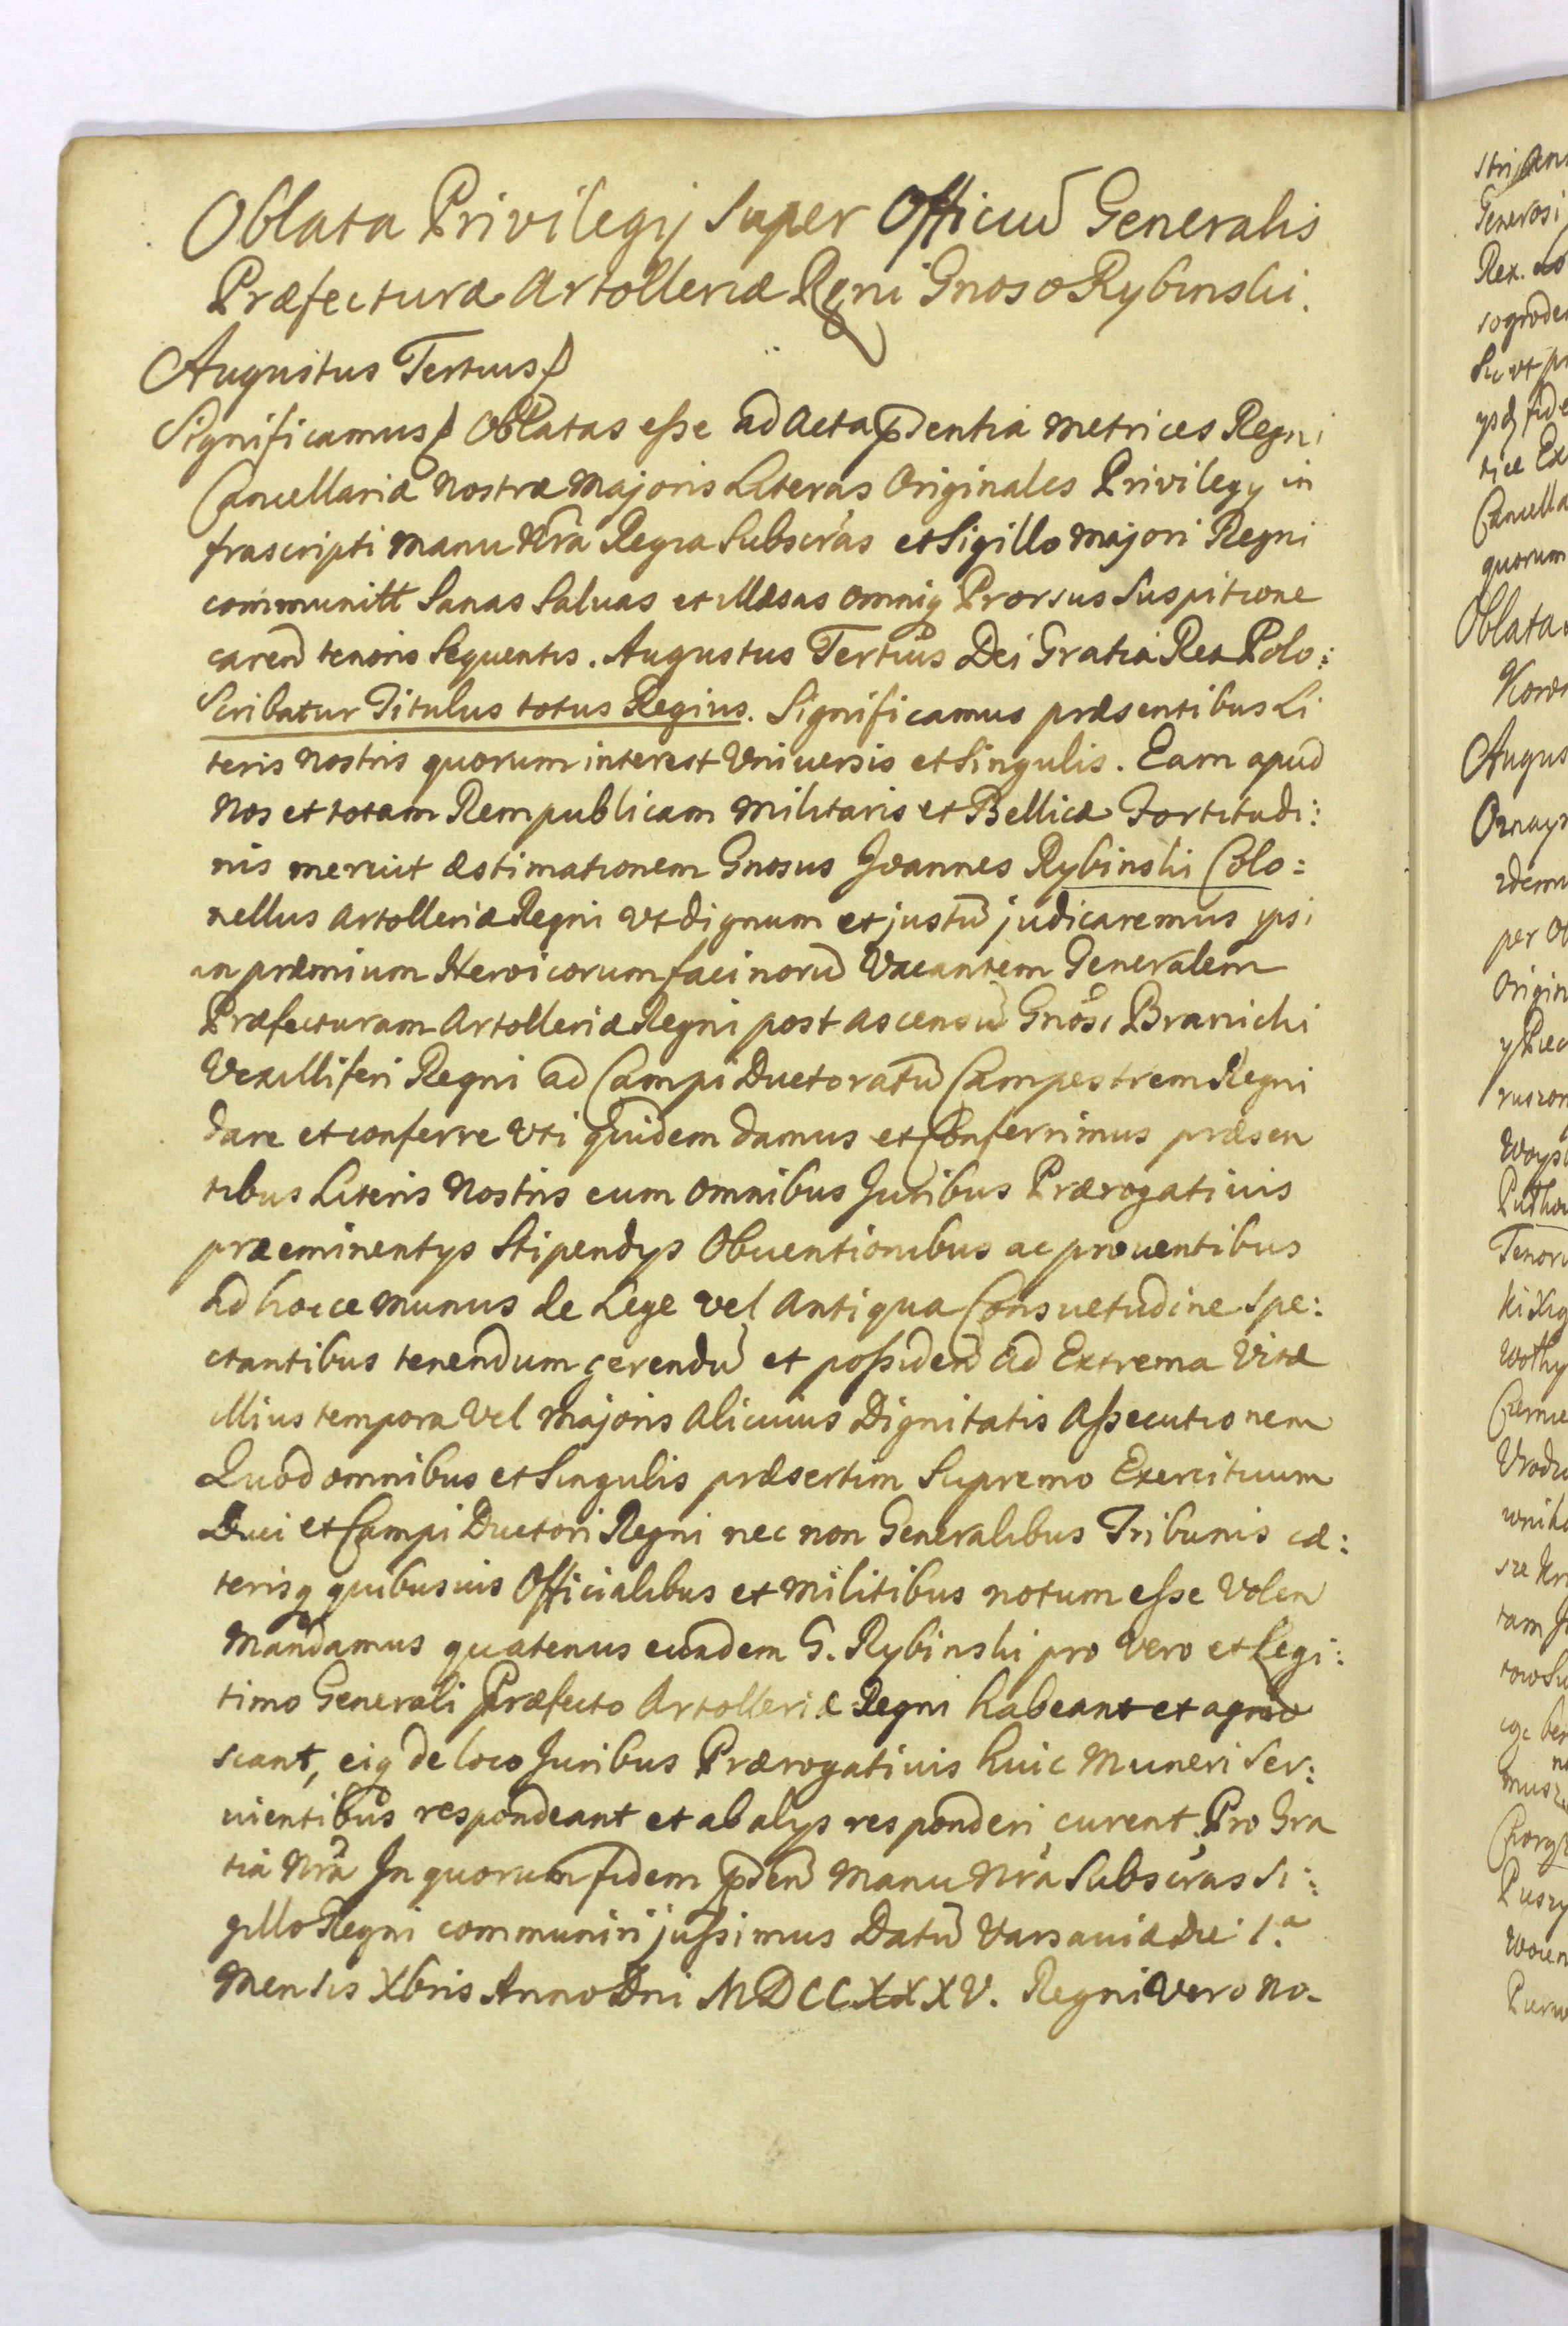 Oblata Privilegij super Officiū Generalis
Præfecturæ Artolleriæ Rgni Gnoso Rybinski.
Augustus Tertius
Significamus Oblatas esse ad Acta pdentia Metrices Regni
Cancellariæ Nostræ Majoris Literas Originales Privilegy in
frascripti manu Nrã Regia Subscras et Sigillo majori Regni
communitt Sanas Salvas et illæsas omniq Prorsus Suspitione
carend tenoris sequentis. Augustus Tertius Dei Gratia Rex Polo:
Scribatur Titulus totus Regius. Significamus præsentibus Li
teris Nostris quorum interest Universis et Singulis. Eam apud
Nos et totam Rempublicam Militaris et Bellicæ Fortitudi:
nis meruit æstimationem Gnosus Joannes Rybinski Colo:
nellus Artolleriæ Regni Ut dignum et justū judicaremus ipsi
in præmium Heroicorum facinorū Vacantem Generalem
Præfecturam Artolleriæ Regni post ascensū Gnosi Branicki
Vexilliferi Regni ad Campi Ductoratū Campestrem Regni
dare et conferre Uti quidem damus et Conferrimus præsen
tibus Literis Nostris cum omnibus Juribus Prærogativis
præeminentys Stipendys Obuentionibus ac prouentibus
ad hocce munus de Lege vel Antiqua Consuetudine Spe:
ctantibus tenendum gerendū et possidend ad Extrema Vitæ
illius tempora Vel Majoris Alicuius Dignitatis Assecutionem
Quod omnibus et Singulis præsertim Supremo Exercituum
Duci et Campi Ductori Regni nec non Generalibus Tribunis cæ:
terisq quibusuis Officialibus et Militibus notum esse Volen
et
Mandamus quatenus eundem G. Rybinski pro Vero et Legi:
timo Generali Præfecto Artolleriæ Regni habeant et agno
scant, eiq de loco Juribus Prærogatiuis huic Muneri Ser:
uientibus respondeant et ab alys responderi curent Pro Gra
tia Nrã In quorum fidem pden Manu Nrã Subscras Si:
gillo Regni communiri jussimus Datū Varsaviæ die 1.a
Mensis Xbris Anno Dni MDCCXXXV. Regni Vero No-